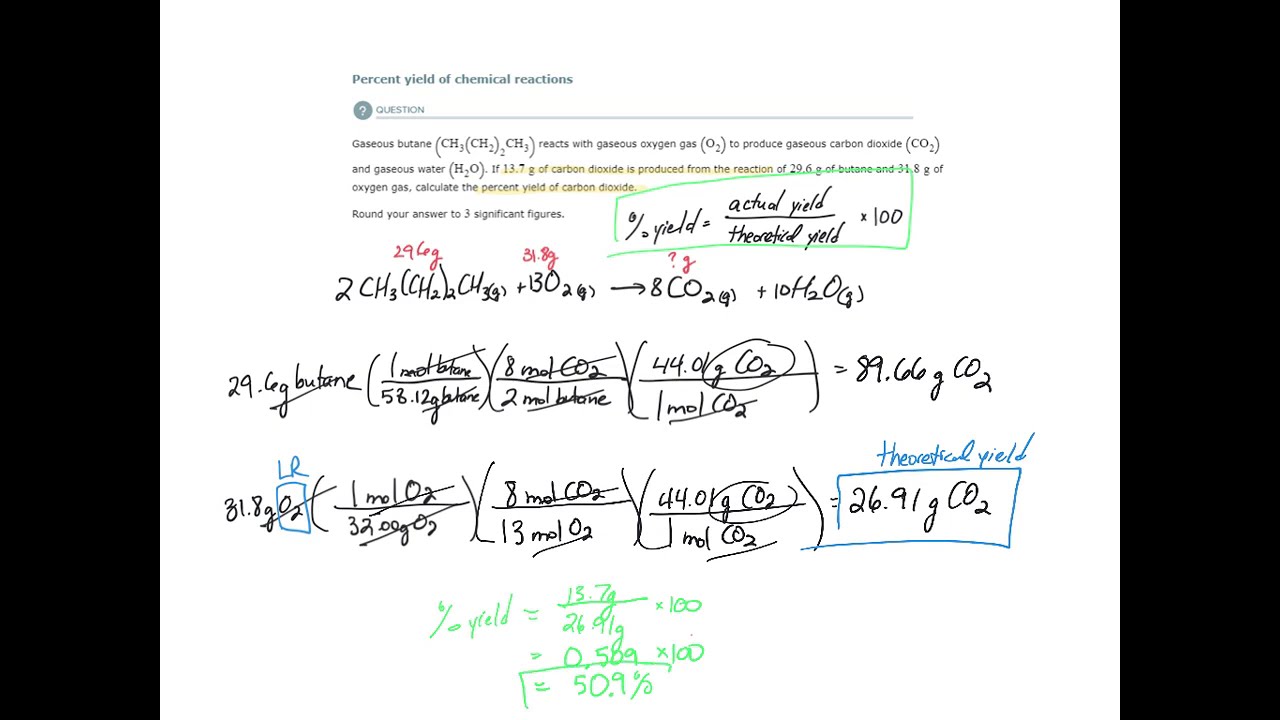 Percent yield of chemical reactions
? QUESTION
Gaseous butane (CH₃(CH₂)₂CH₃) reacts with gaseous oxygen gas (O₂) to produce gaseous carbon dioxide (CO₂)
and gaseous water (H₂O). If 13.7 g of carbon dioxide is produced from the reaction of 29.6 g of butane and 31.8 g of
oxygen gas, calculate the percent yield of carbon dioxide.
Round your answer to 3 significant figures.
% yield = actual yield / theoretical yield × 100
29.6g 31.8g ? g
2 CH₃(CH₂)₂CH₃(g) + 13O₂(g) → 8CO₂(g) + 10H₂O(g)
29.6g butane (1 mol butane / 58.12g butane)(8 mol CO₂ / 2 mol butane)(44.01 g CO₂ / 1 mol CO₂) = 89.66 g CO₂
theoretical yield
LR
31.8g O₂ (1 mol O₂ / 32.00g O₂)(8 mol CO₂ / 13 mol O₂)(44.01 g CO₂ / 1 mol CO₂) = 26.91 g CO₂
% yield = 13.7g / 26.91g × 100
= 0.509 × 100
= 50.9%